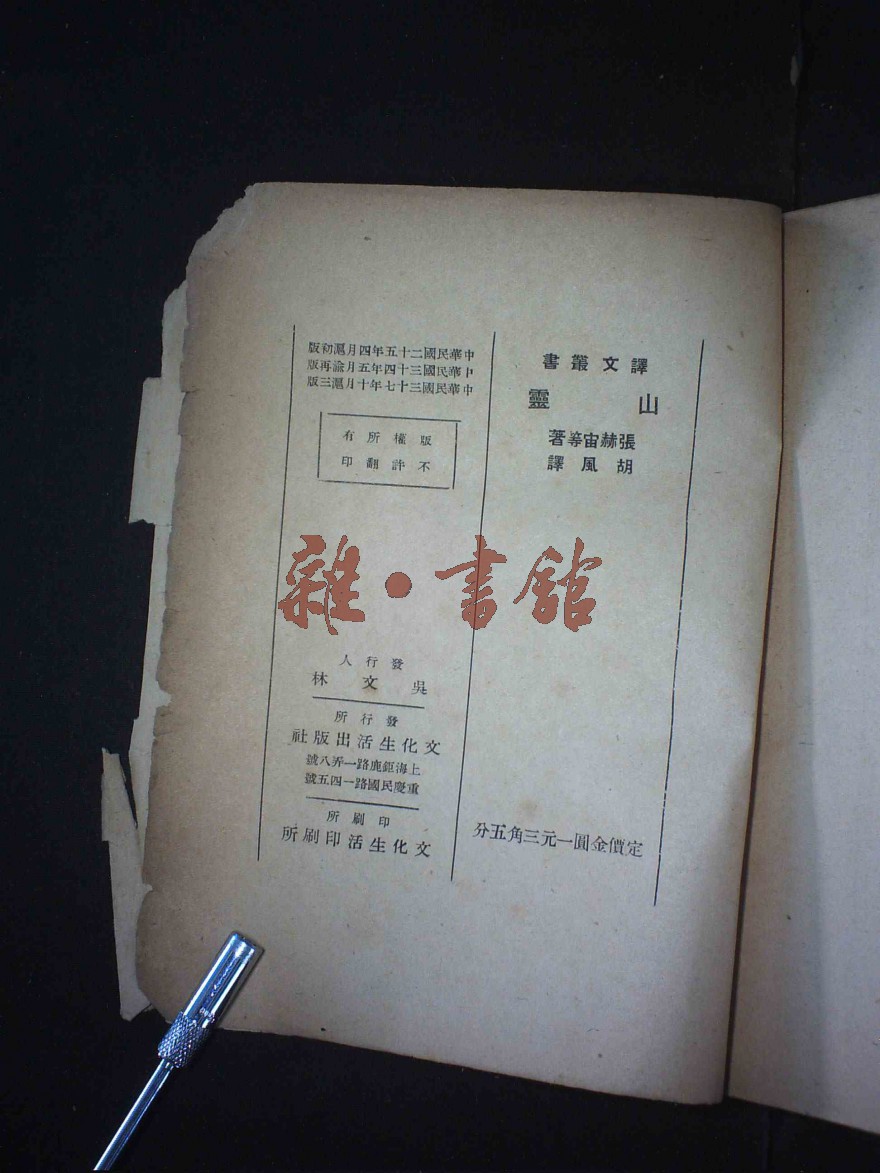 譯文叢書
山靈
張赫宙等著
胡風譯
定價金圓一元三角五分
中華民國二十五年四月滬初版
中華民國三十四年五月渝再版
中華民國三十七年十月滬三版
版權所有
不許翻印
發行人
吳文林
發行所
文化生活出版社
上海鉅鹿路一弄八號
重慶民國路一四五號
印刷所
文化生活印刷所
雜·書館